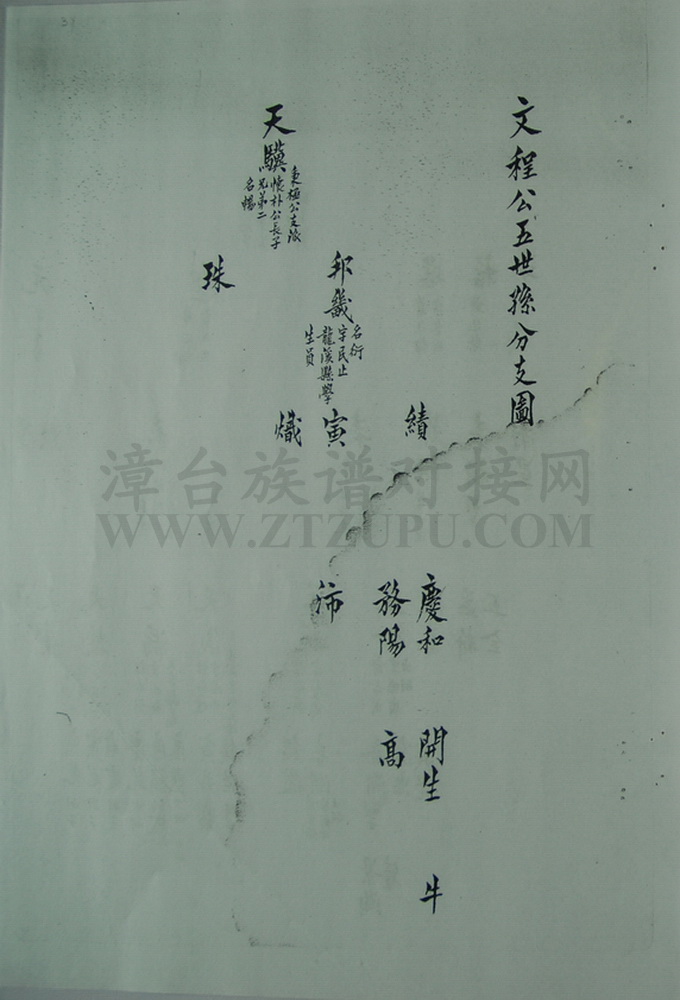 文程公五世孫分支圖
績
慶和
開生
牛
務陽
高
邦畿
名衍
字民止
龍溪縣學
生員
寅
沛
熾
天驥
東極公支派
懷朴公長子
兄弟二
名暢
珠
漳台族谱对接网
WWW.ZTZUPU.COM